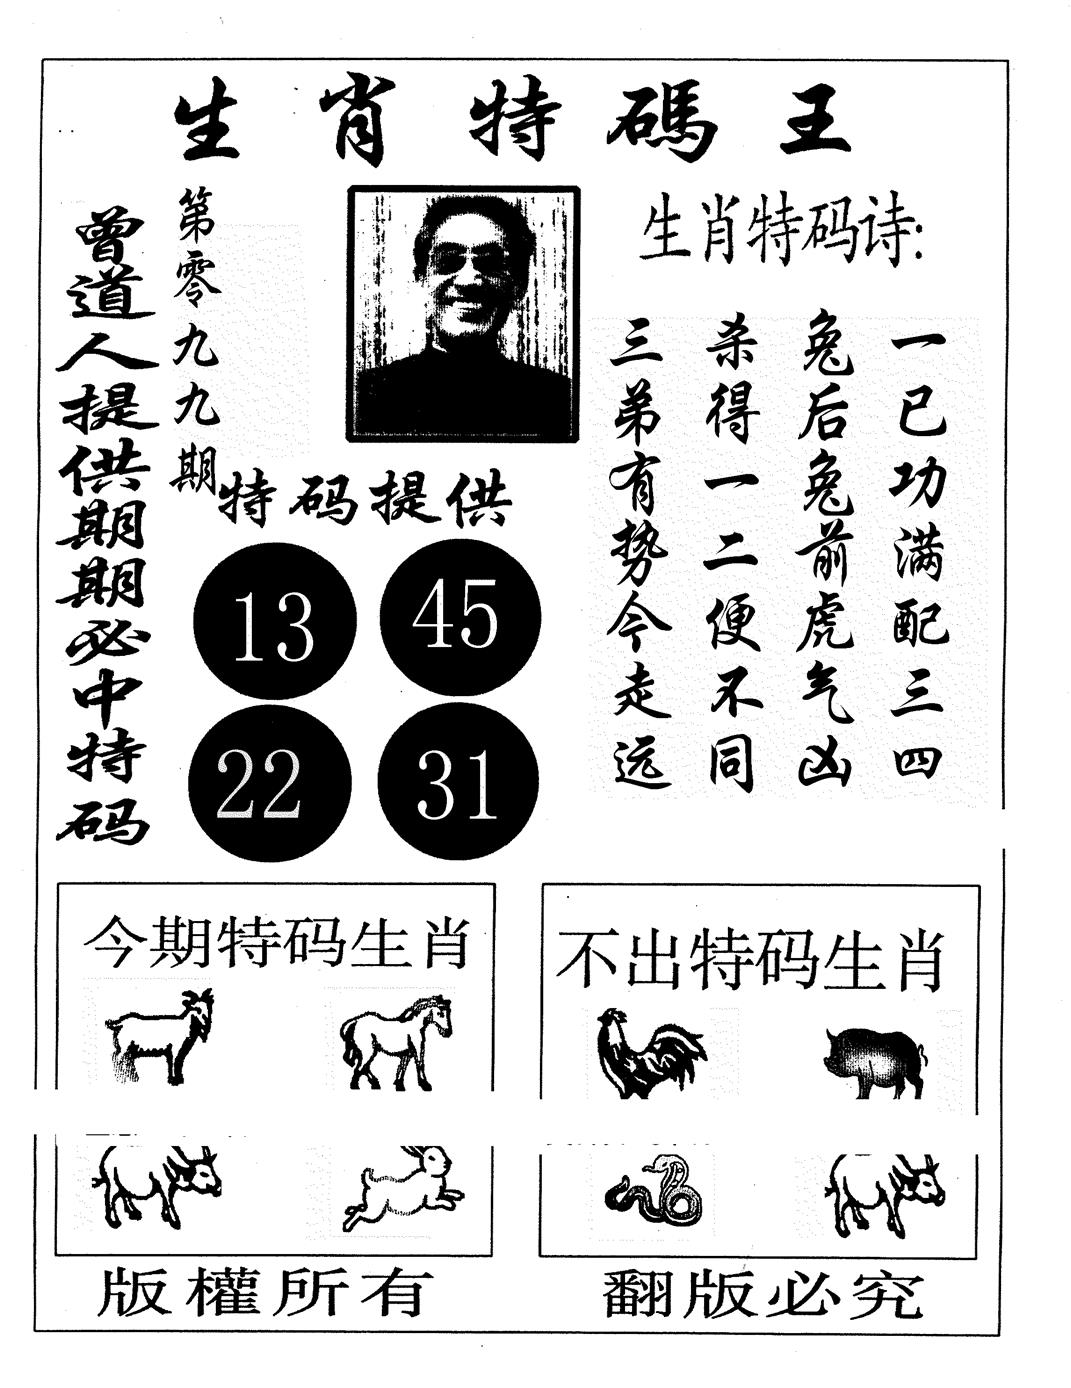 生肖特碼王
曾道人提供期期必中特码
第零九九期
生肖特码诗:
一已功满配三四
兔后兔前虎气凶
杀得一二便不同
三弟有势今走远
特码提供
13 45
22 31
今期特码生肖
不出特码生肖
版權所有
翻版必究